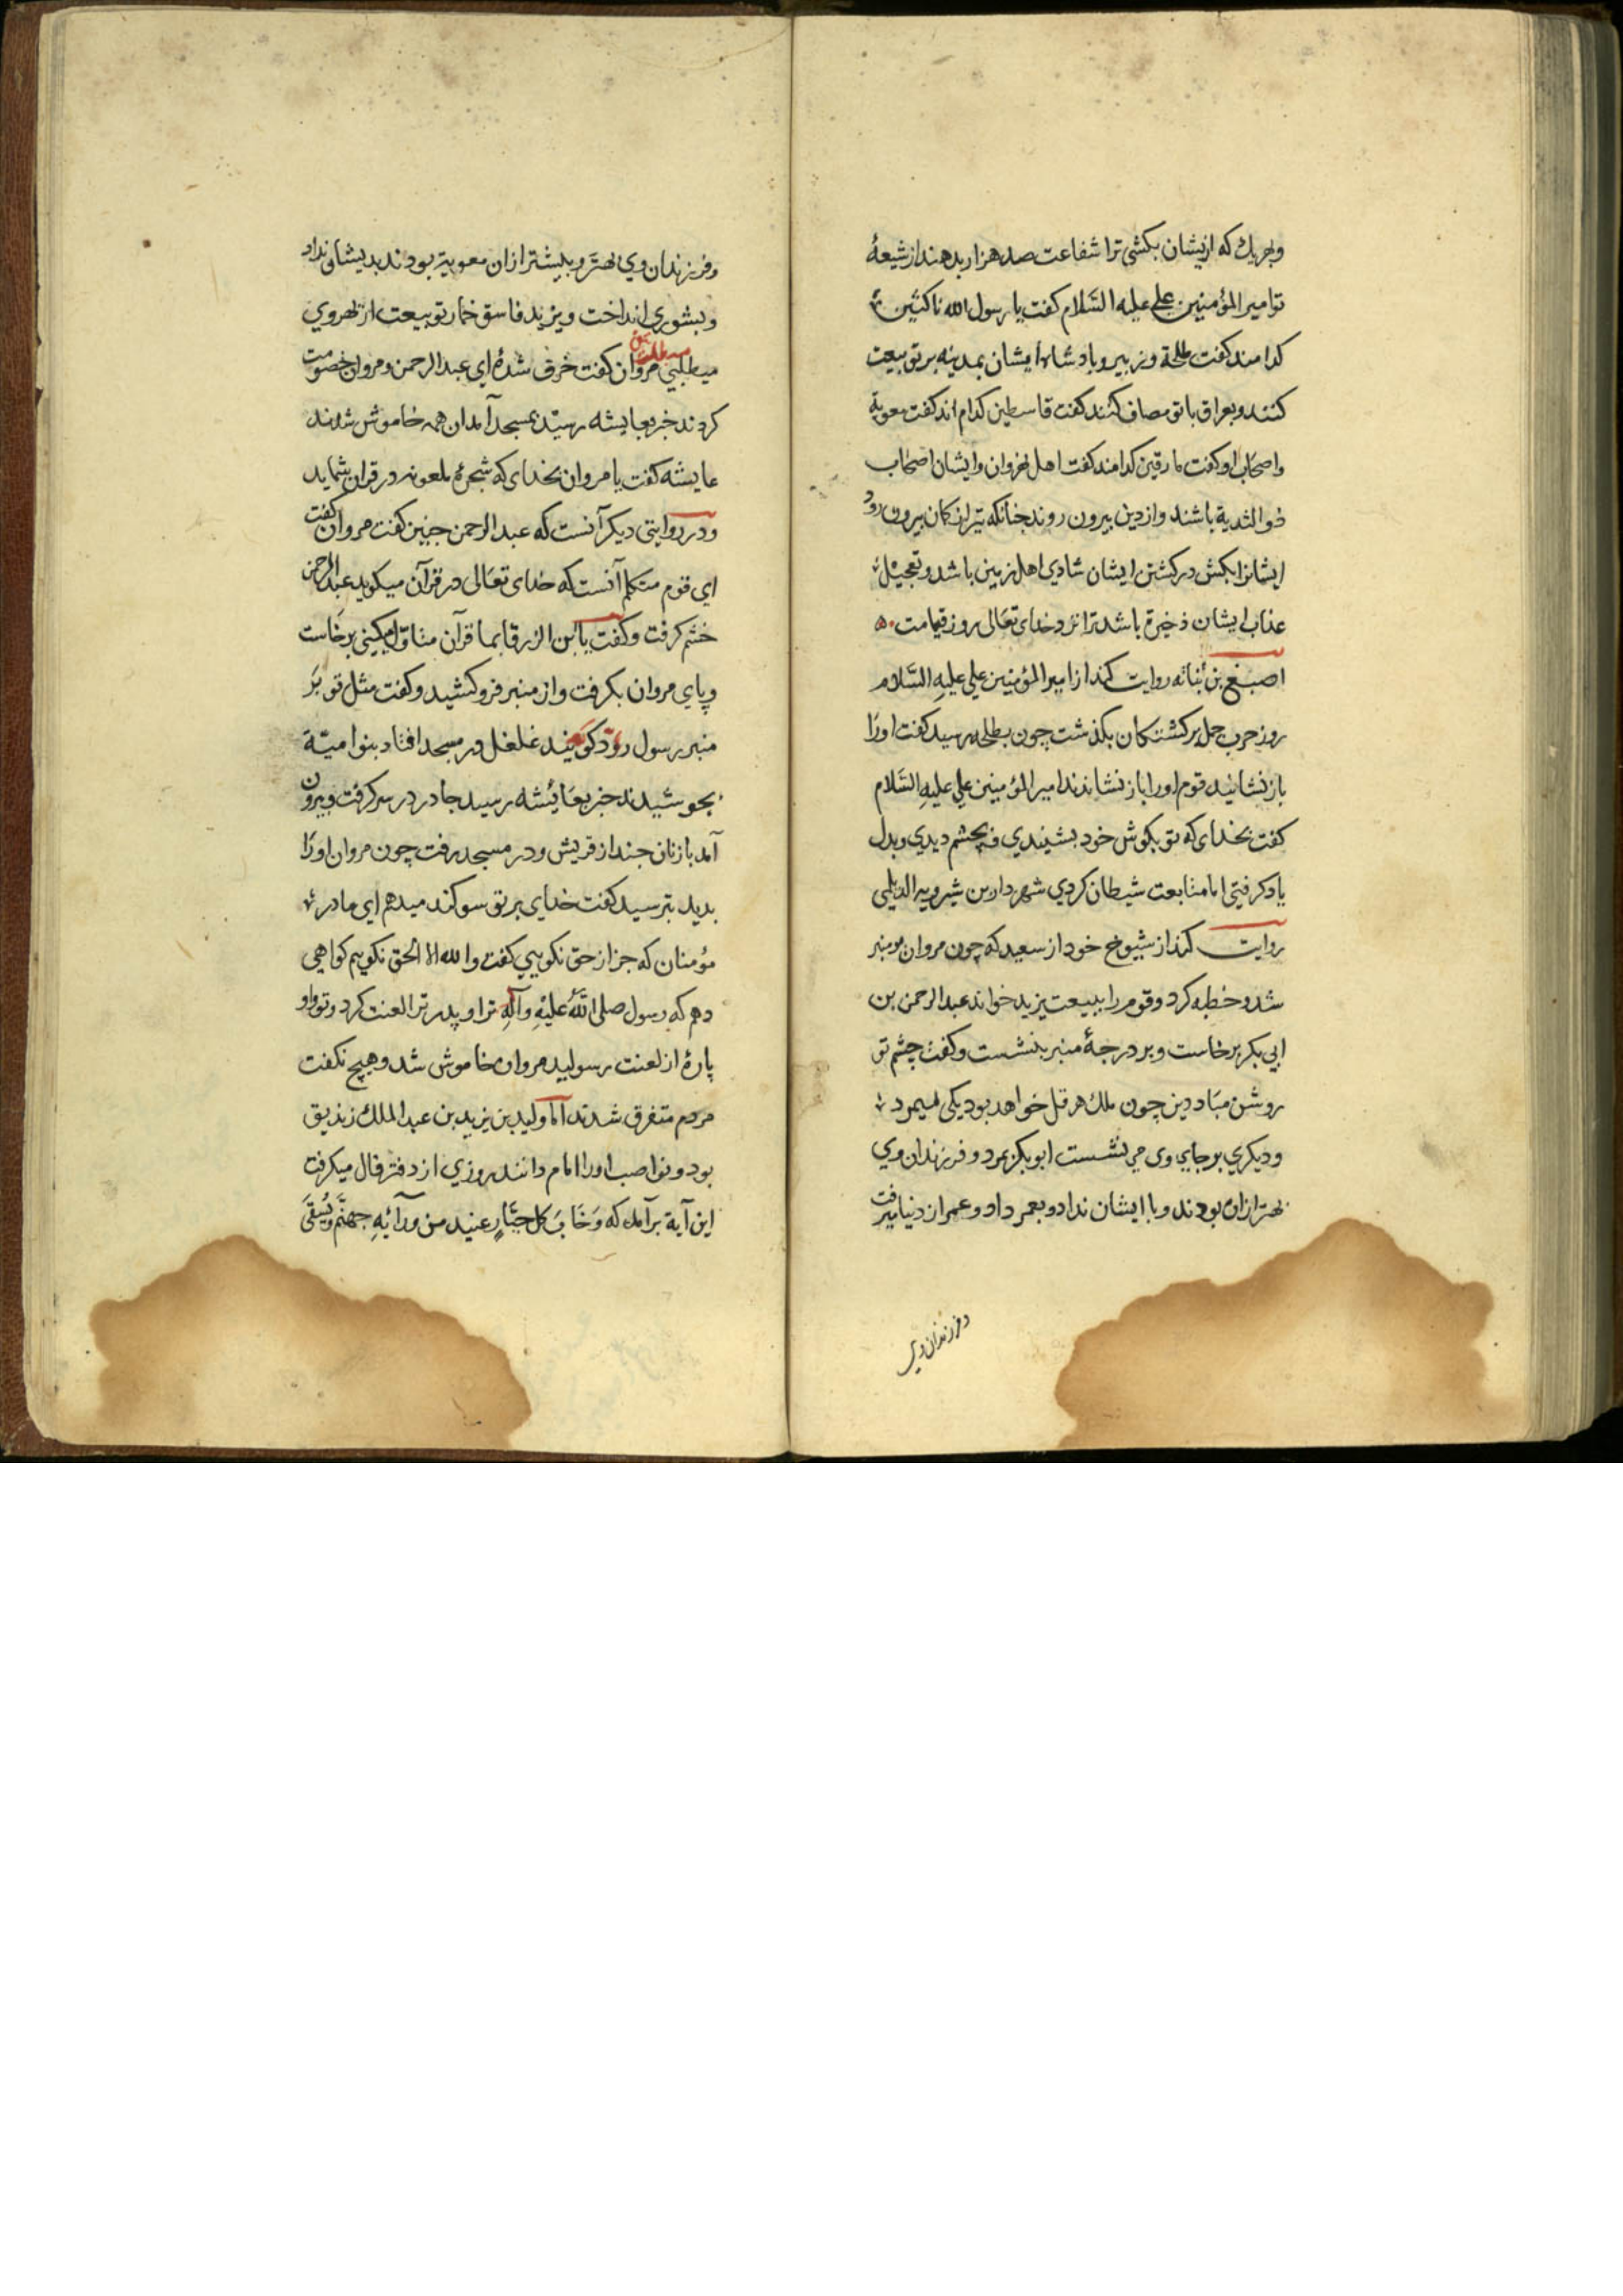 وبهریك که ازیشان بکشی ترا شفاعت صد هزار بدهند از شیعهٔ
تو امیر المؤمنین علی علیه السّلام کفت یا رسول الله ناکثین
کدامند کفت طلحة وزبیر وبادشاه ایشان بمدینه بر تو بیعت
کنند وبعراق با تو مصاف کنند کفت قاسطین کدام اند کفت معویة
واصحاب او کفت مارقین کدامند کفت اهل نهروان وایشان اصحاب
ذو الثدیة باشند واز دین بیرون روند جنانکه تیر از کمان بیرون رود
ایشانرا بکش در کشتن ایشان شادی اهل زمین باشد وتعجیل
عذاب ایشان ذخیرة باشد ترا نزد خدای تعالی روز قیامت
اصبغ بن نباته روایت کند از امیر المؤمنین علی علیه السّلام
روز حرب جمل بر کشتکان بکذشت چون بطلحه رسید کفت اورا
باز نشانید قوم اورا باز نشاندند امیر المؤمنین علی علیه السّلام
کفت بخدای که تو بکوش خود بشیندی وبچشم دیدی وبدل
یاد کرفتی اما متابعت شیطان کردی شهردار بن شیرویه الدیلمی
روایت کند از شیوخ خود از سعید که چون مروان بر منبر
شد وخطبه کرد وقوم را ببیعت یزید خواند عبد الرحمن بن
ابی بکر برخاست وبر درجهٔ منبر بنشست وکفت چشم تو
روشن مباد دین چون ملك هرقل خواهد بود یکی میمرد
ودیکری بر جای وی می نشست ابو بکر بمرد وفرزندان وی
بهتر ازان بودند وبا ایشان نداد وبعمر داد وعمر از دنیا برفت
وفرزندان وی
وفرزندان وی بهتر وبیشتر ازان معویة بودند بدیشان نداد
وبشوری انداخت ویزید فاسق خمار تو بیعت از بهر وی
میطلبی مروان کفت خرف شدهٔ ای عبد الرحمن ومروان خصومت
کردند خبر بعایشه رسید بمسجد آمد ان همه خاموش شدند
عایشه کفت یا مروان بخدای که شجرهٔ ملعونه در قران شماید
ودر روایتی دیکر آنست که عبد الرحمن جنین کفت مروان کفت
ای قوم متکلم آنست که خدای تعالی در قرآن میکوید عبد الرحمن
خشم کرفت وکفت یا بن الزرقا بما قرآن متاول میکنی برخاست
وپای مروان بکرفت واز منبر فرو کشید وکفت مثل تو بر
منبر رسول رود کویند غلغل در مسجد افتاد بنو امیّة
بجوشیدند خبر بعائشه رسید جادر در سر کرفت وبیرون
آمد با زنان جند از قریش ودر مسجد رفت چون مروان اورا
بدید بترسید کفت خدای بر تو سوکند میدهم ای مادر
مؤمنان که جز از حق نکویی کفت والله الا الحق نکویم کواهی
دهم که رسول صلی الله علیه وآله ترا وپدر ترا لعنت کرد وتو واو
پارهٔ از لعنت رسولید مروان خاموش شد وهیچ نکفت
مردم متفرق شدند اما ولید بن یزید بن عبد الملك زندیق
بود ونواصب اورا امام دانند روزی از دفتر فال میکرفت
این آیة برآمد که وَخَابَ کل جبّارٍ عنید من ورآئه جهنّم ویُسقَی